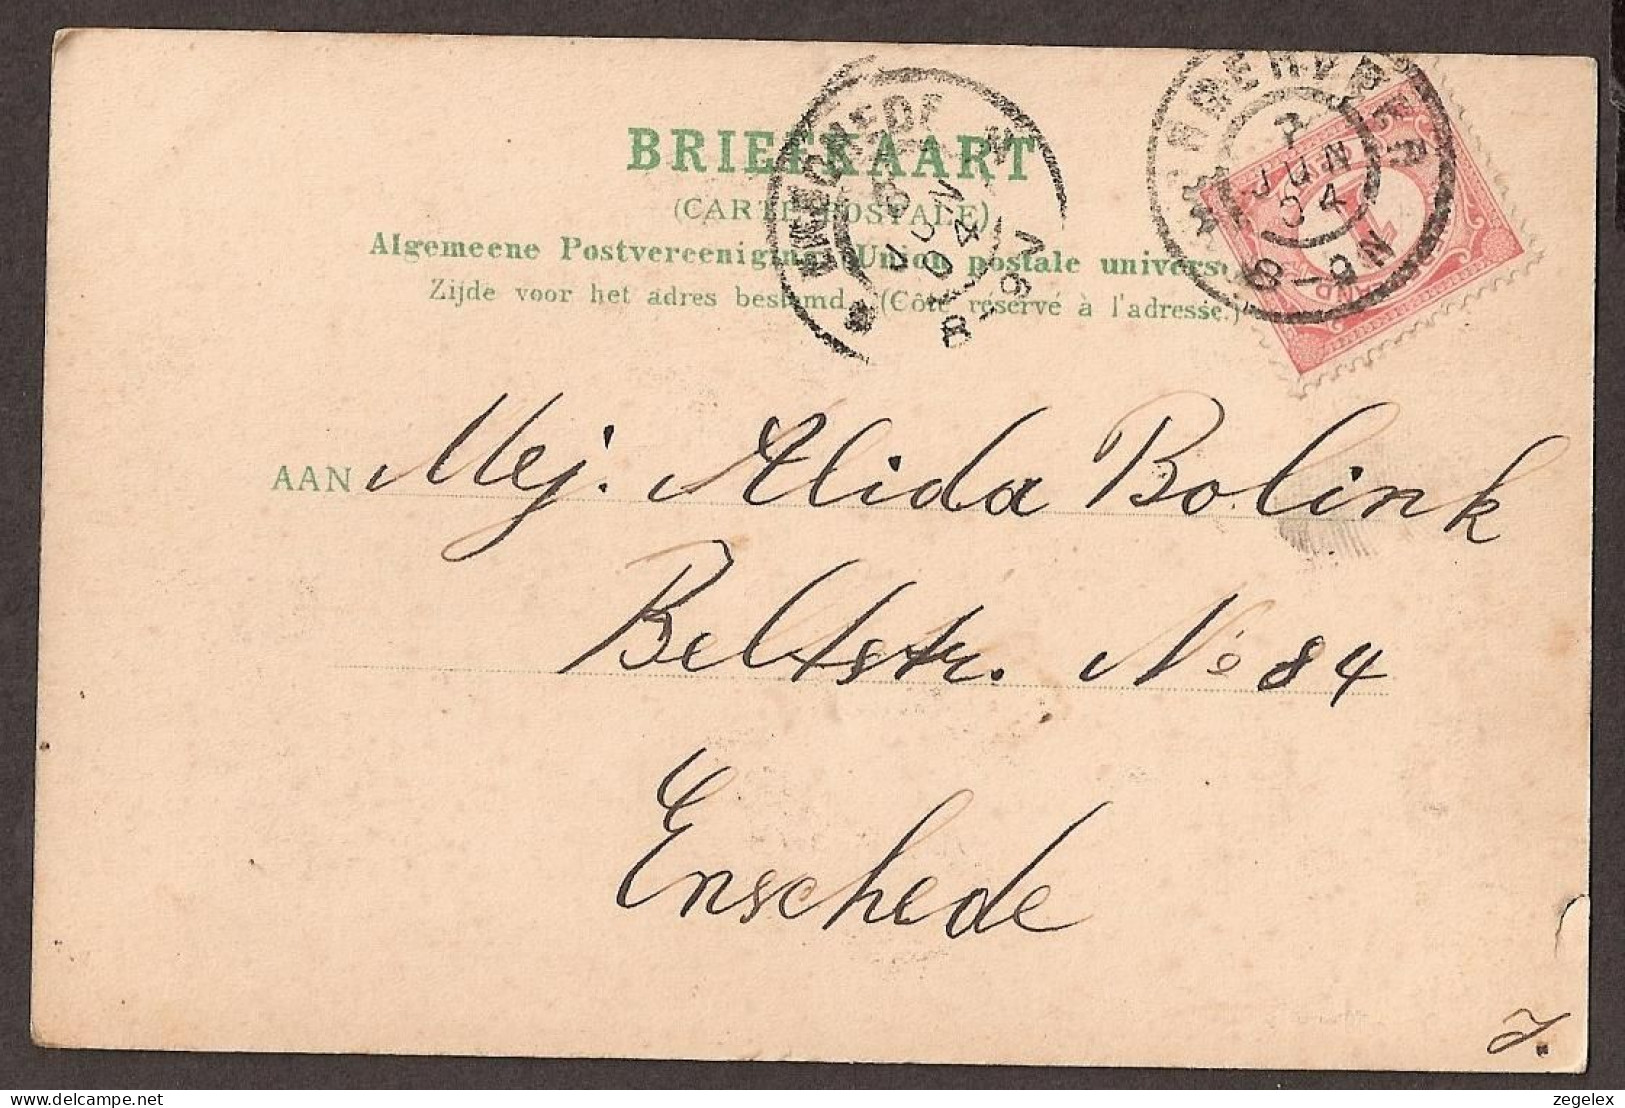 BRIEFKAART
(CARTE POSTALE)
Algemeene Postvereeniging. Union postale univers
Zijde voor het adres bestemd. (Côté réservé à l'adresse.)
ENSCHEDE
8 JUN 04
8-9V
7
JUN
04
8-9N
1
AAN Mej. Alida Bolink
Beltstr. No 84
Enschede
J.
zegelex